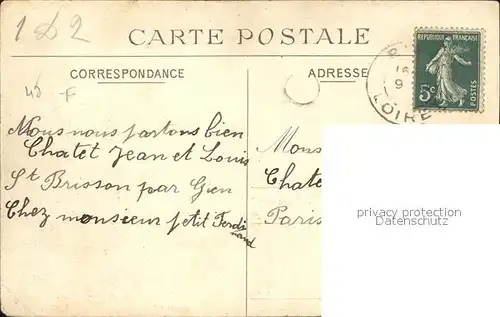 1 62
CARTE POSTALE
CORRESPONDANCE
ADRESSE
REPUBLIQUE FRANÇAISE
5c
POSTES
LOIRE
40 F
Nous nous portons bien
Chatet Jean et Louis
St Brisson par Gien
Chez monsieur petit Ferdi
nand
Mons
Chate
Paris
privacy protection
Datenschutz